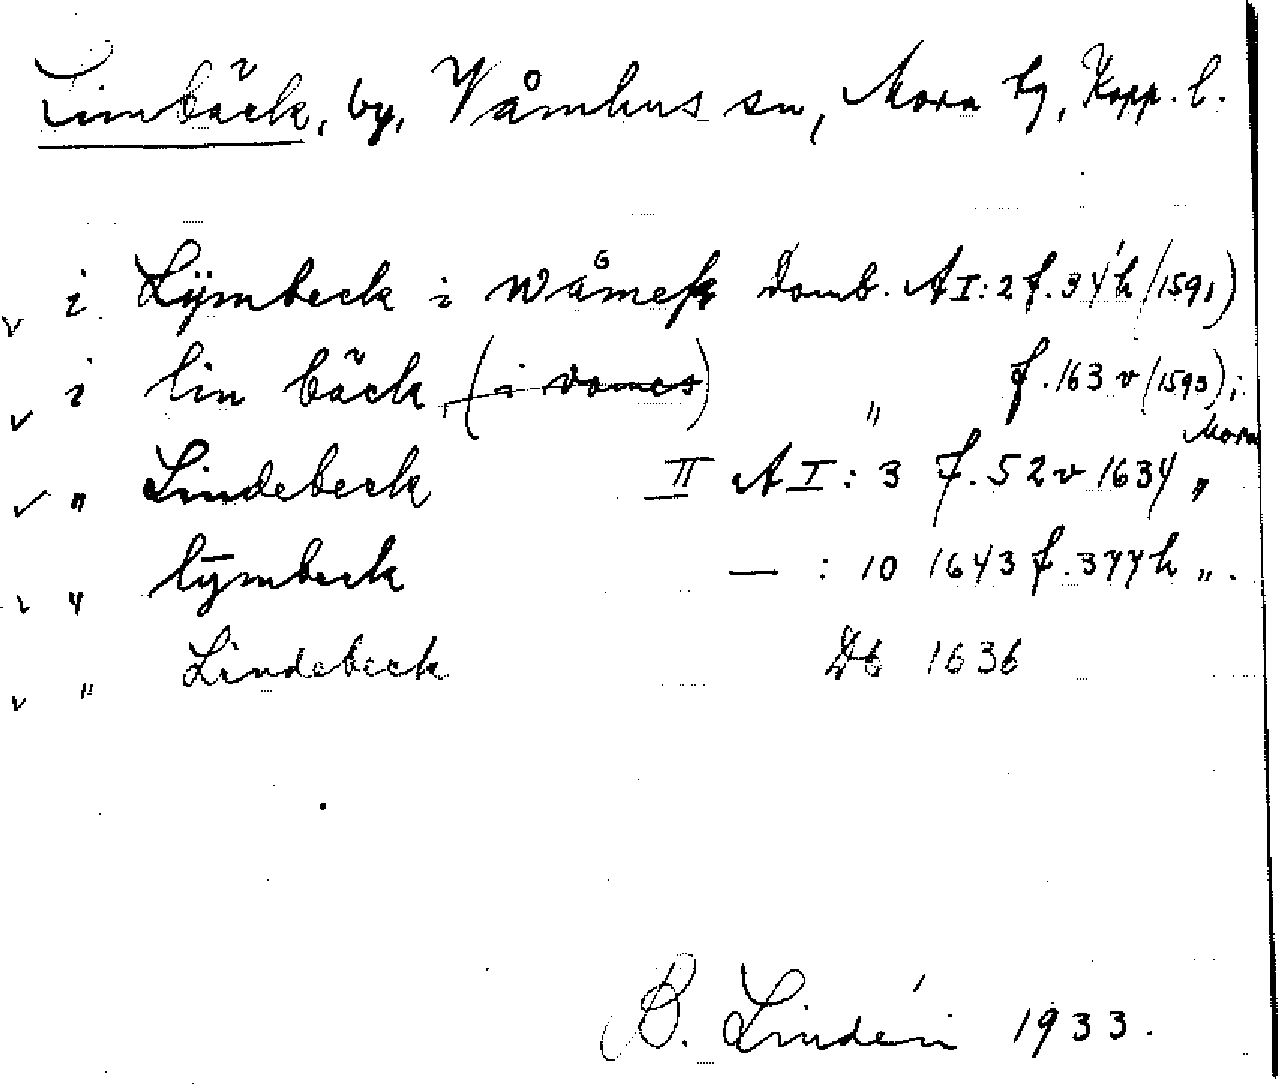 Limbäck, by, Våmhus sn, Mora tg, Kopp. l.
v i Lÿmbeck i Wåmes Domb. A I:2 f. 34 h (1591)
v i lin bäck (i vames) " f. 163 v (1593); Mora
v " Lindebeck II A I : 3 f. 52 v 1634 "
v " lÿmbeck — : 10 1643 f. 377 h ".
v " Lindebeck Db 1636
B. Lindén 1933.